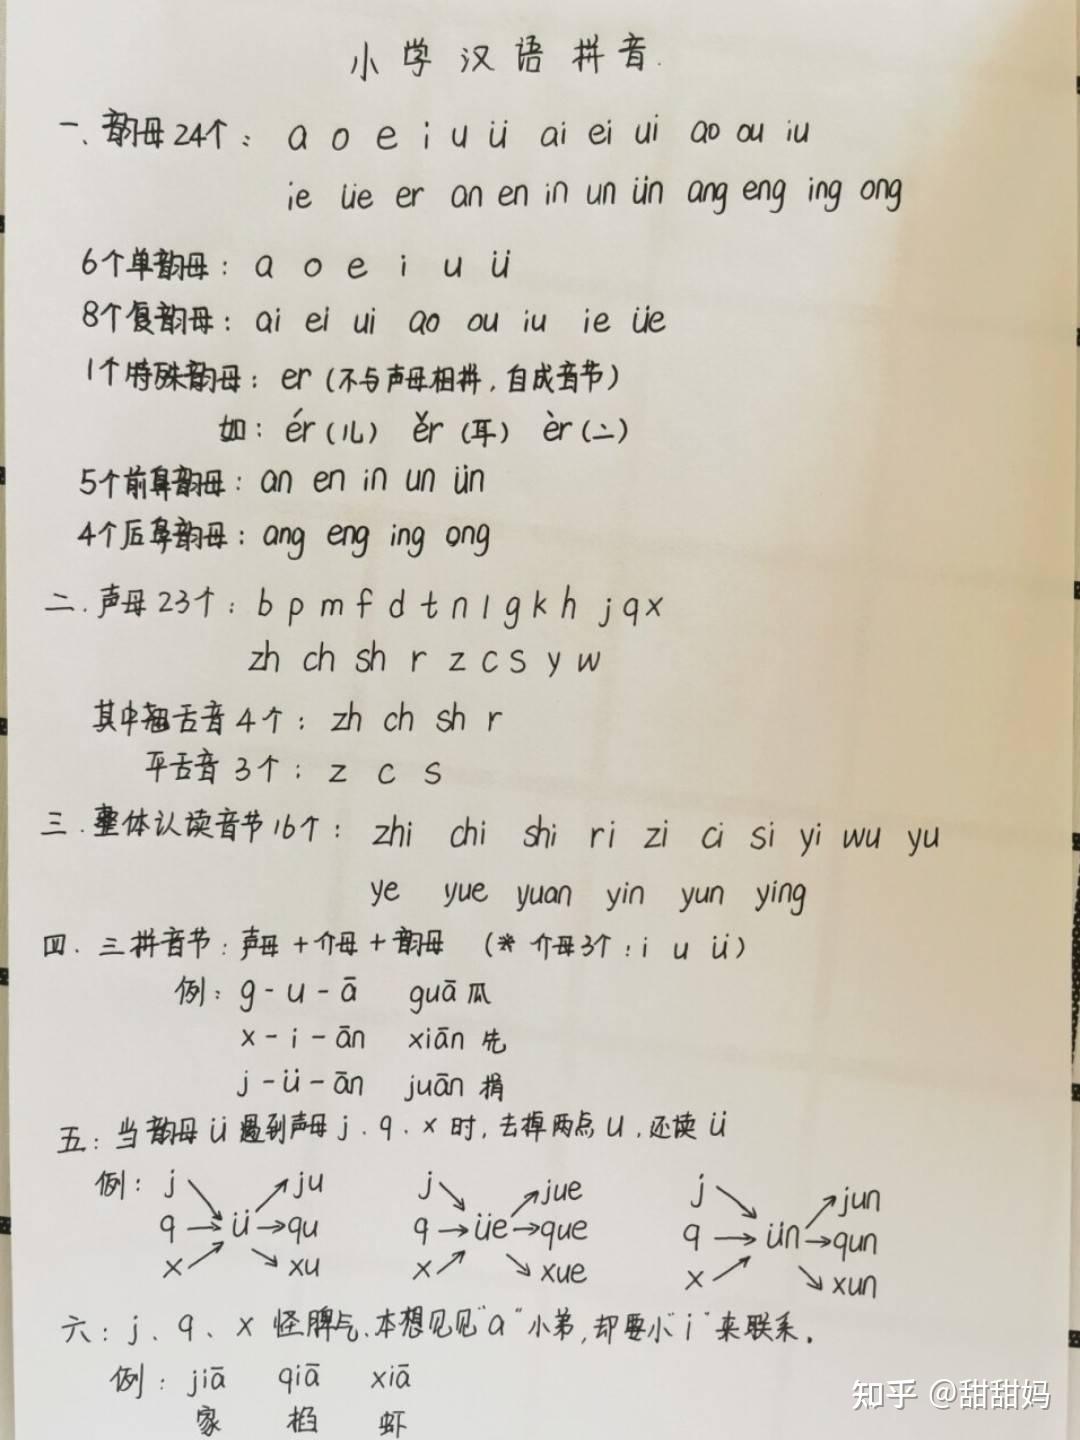 小学汉语拼音.
一、韵母24个: a o e i u ü ai ei ui ao ou iu
ie üe er an en in un ün ang eng ing ong
6个单韵母: a o e i u ü
8个复韵母: ai ei ui ao ou iu ie üe
1个特殊韵母: er (不与声母相拼,自成音节)
如: ér(儿) ěr(耳) èr(二)
5个前鼻韵母: an en in un ün
4个后鼻韵母: ang eng ing ong
二.声母23个: b p m f d t n l g k h j q x
zh ch sh r z c s y w
其中翘舌音4个: zh ch sh r
平舌音3个: z c s
三.整体认读音节16个: zhi chi shi ri zi ci si yi wu yu
ye yue yuan yin yun ying
四.三拼音节: 声母+介母+韵母 (* 介母3个: i u ü)
例: g-u-ā guā瓜
x-i-ān xiān先
j-ü-ān juān捐
五:当韵母ü遇到声母j.q.x时,去掉两点u,还读ü
例: j ju j jue j jun
q ü qu q üe que q ün qun
x xu x xue x xun
六:j、q、x怪脾气,本想见见"a"小弟,却要小"i"来联系.
例: jiā qiā xiā
家 掐 虾
知乎 @甜甜妈